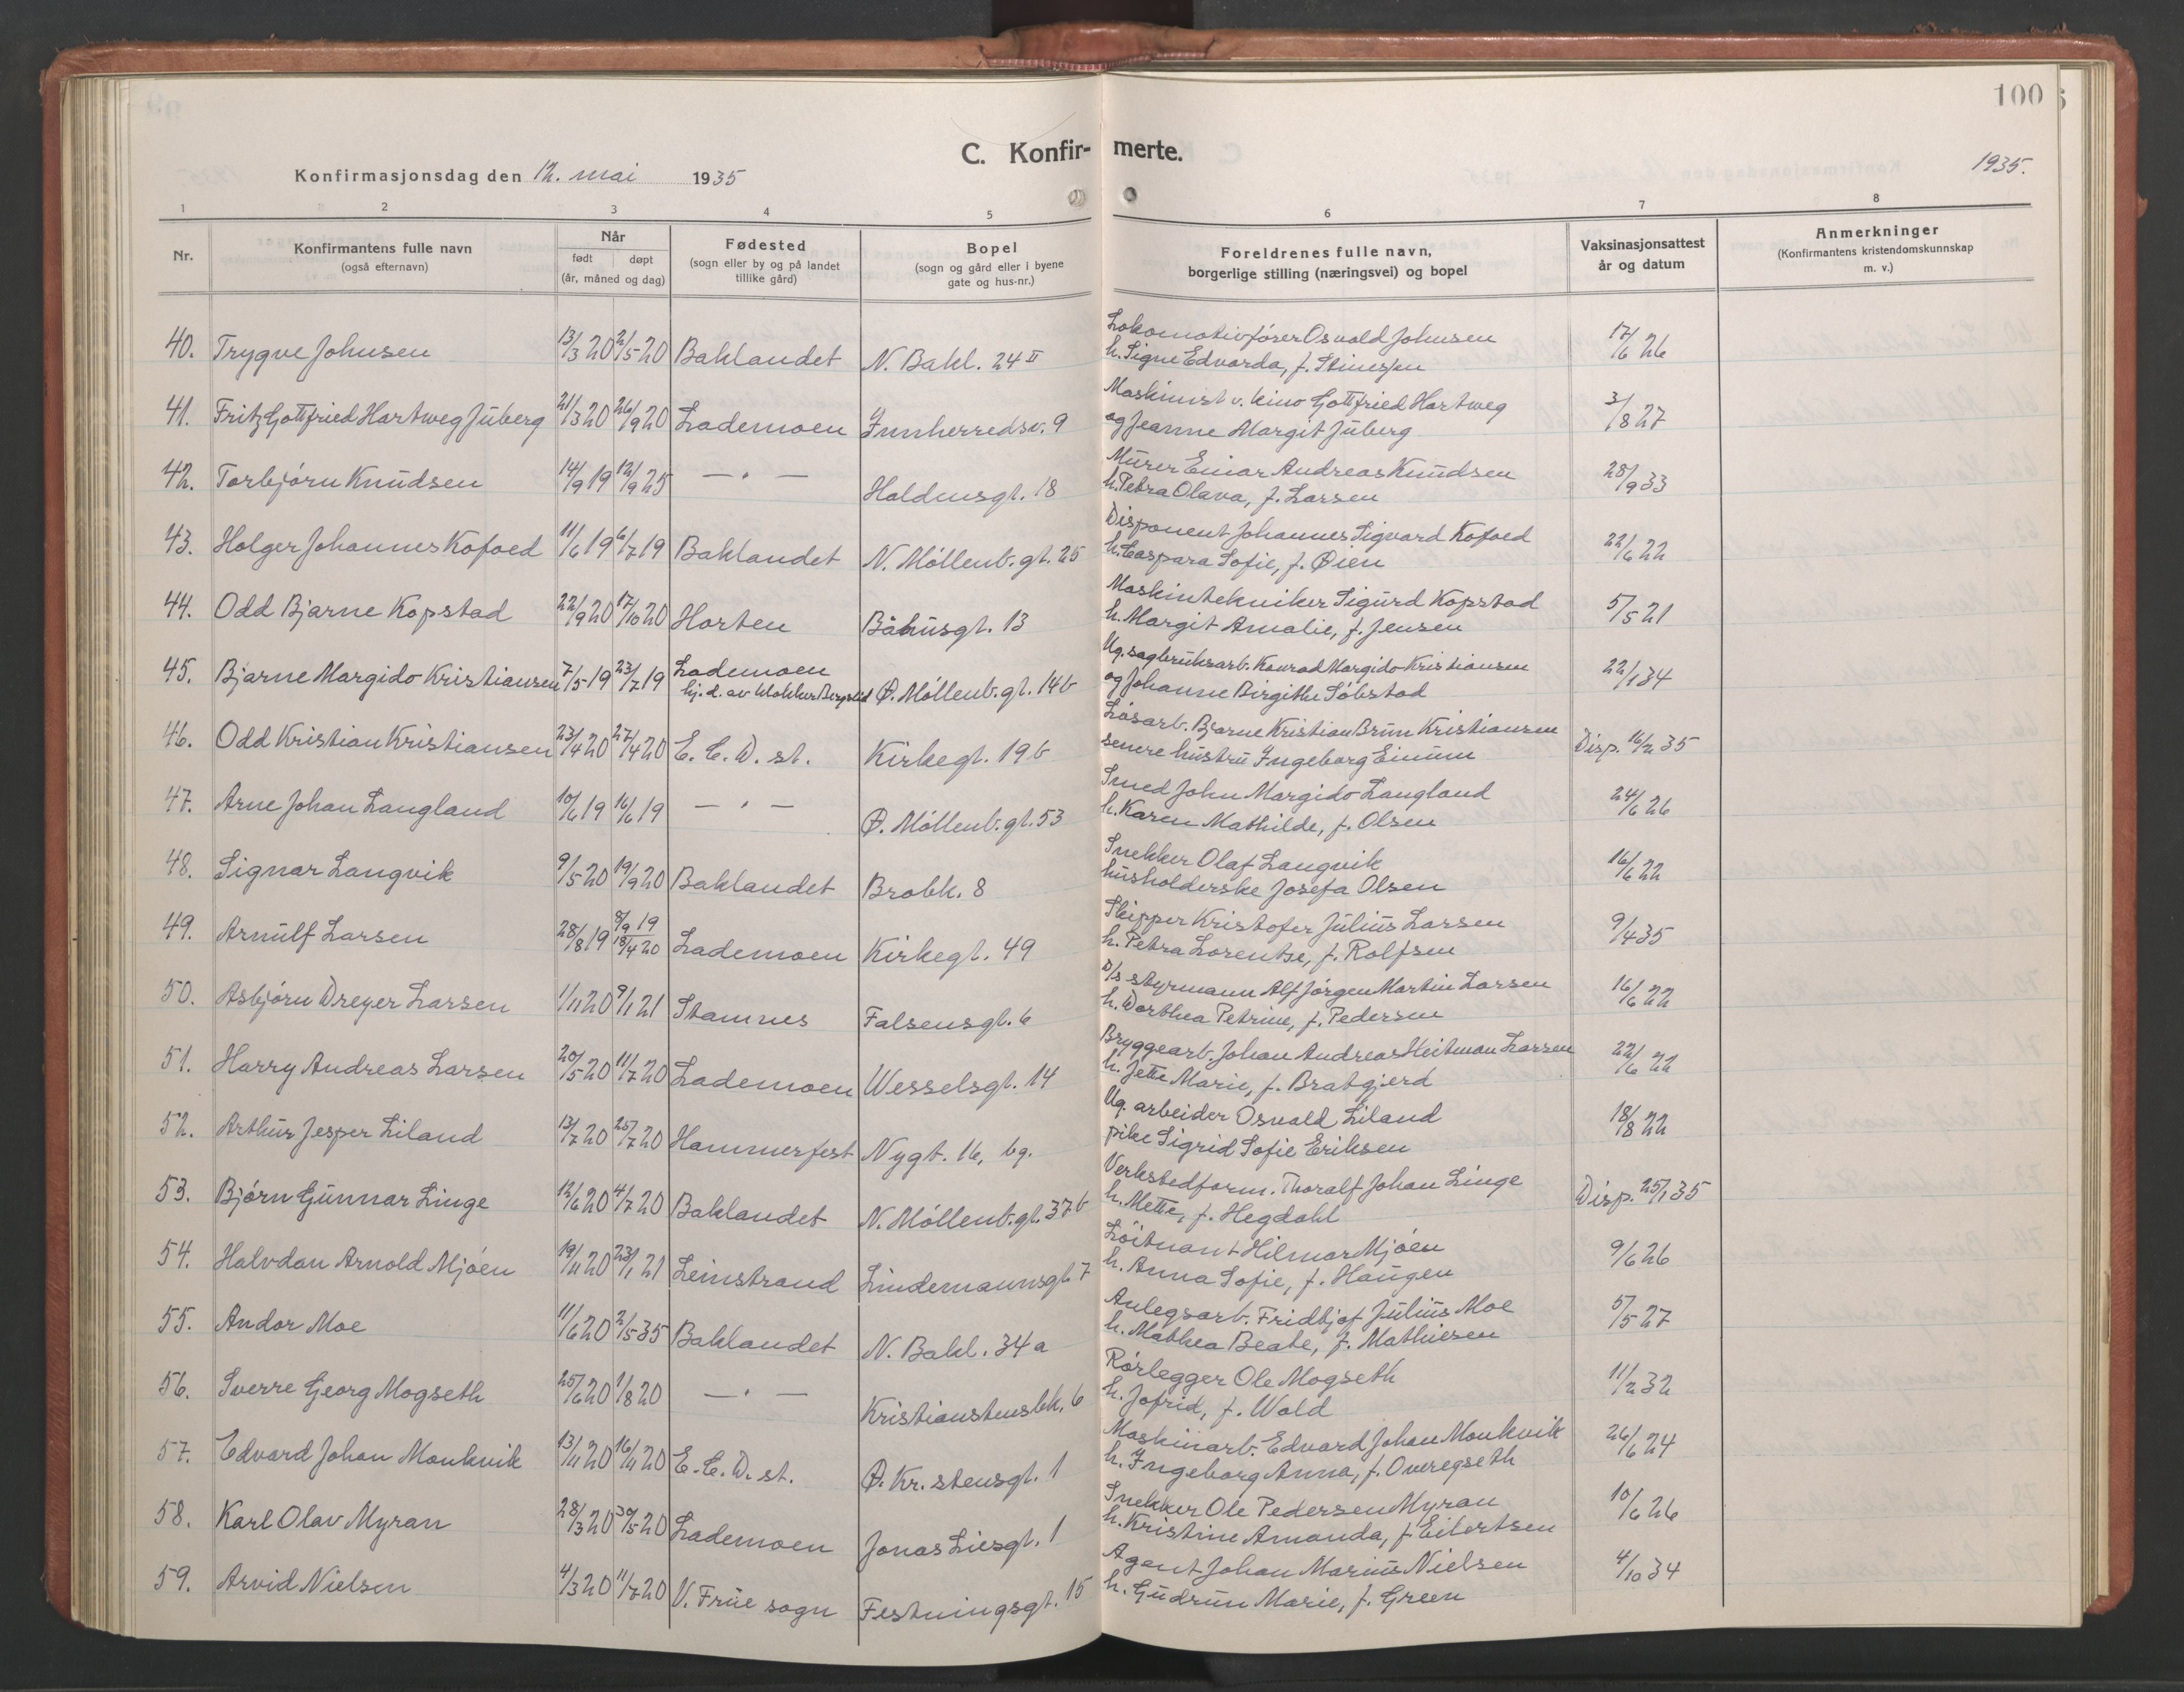 100
C. Konfirmerte.
Konfirmasjonsdag den 12. mai 1935
1935.
1 2 3 4 5 6 7 8
Nr. | Konfirmantens fulle navn (også efternavn) | Når født døpt (år, måned og dag) | Fødested (sogn eller by og på landet tillike gård) | Bopel (sogn og gård eller i byene gate og hus-nr.) | Foreldrenes fulle navn, borgerlige stilling (næringsvei) og bopel | Vaksinasjonsattest år og datum | Anmerkninger (Konfirmantens kristendomskunnskap m. v.)
40. Trygve Johnsen 13/3 20 2/5 20 Baklandet N. Bakl. 24 II Lokomotivfører Osvald Johnsen 17/6 26
h. Signe Edvarda, f. Stinesen
41. Fritz Gottfried Hartweg Juberg 21/3 20 26/9 20 Lademoen Innherredsv. 9 Maskinist v. kino Gottfried Hartweg 3/8 27
og Jeanne Margit Juberg
42. Torbjørn Knudsen 14/9 19 12/9 25 — " — Holdensgt. 18 Murer Einar Andreas Knudsen 28/9 33
h. Petra Olava, f. Larsen
43. Holger Johannes Kofoed 11/6 19 6/7 19 Baklandet N. Møllenb. gt. 25 Disponent Johannes Sigvard Kofoed 22/6 22
h. Caspara Sofie, f. Øien
44. Odd Bjarne Kopstad 22/9 20 17/10 20 Horten Båhusgt. 13 Maskintekniker Sigurd Kopstad 5/5 21
h. Margit Amalie, f. Jensen
45. Bjarne Margido Kristiansen 7/5 19 23/7 19 Lademoen Ø. Møllenb. gt. 14b Ug. sagbruksarb. Konrad Margido Kristiansen 22/1 34
hj. d. av klokker Bergslid og Johanne Birgithe Søbstad
46. Odd Kristian Kristiansen 23/4 20 27/4 20 E. C. D. st. Kirkegt. 19 b Løsarb. Bjarne Kristian Brun Kristiansen Disp. 16/2 35
senere hustru Ingeborg Einum
47. Arne Johan Langland 10/6 19 16/6 19 — " — Ø. Møllenb. gt. 53 Smed John Margido Langland 24/6 26
h. Karen Mathilde, f. Olsen
48. Signar Langvik 9/5 20 19/9 20 Baklandet Brobk. 8 Snekker Olaf Langvik 16/6 22
husholderske Josefa Olsen
49. Arnulf Larsen 28/8 19 8/9 19 18/4 20 Lademoen Kirkegt. 49 Skipper Kristofer Julius Larsen 9/4 35
h. Petra Lorentse, f. Rolfsen
50. Asbjørn Dreyer Larsen 1/11 20 9/1 21 Stamnes Falsensgt. 6 D/s styrmann Alf Jørgen Martin Larsen 16/6 22
h. Dorthea Petrine, f. Pedersen
51. Harry Andreas Larsen 20/5 20 11/7 20 Lademoen Wesselsgt. 14 Bryggearb. Johan Andreas Heitman Larsen 22/6 22
h. Jette Marie, f. Bratgjerd
52. Arthur Jesper Liland 13/7 20 25/7 20 Hammerfest Nygt. 16, bg. Ug. arbeider Osvald Liland 18/8 22
pike Sigrid Sofie Eriksen
53. Bjørn Gunnar Linge 12/6 20 4/7 20 Baklandet N. Møllenb. gt. 37 b Verkstedform. Thoralf Johan Linge Disp. 25/1 35
h. Mette, f. Hegdahl
54. Halvdan Arnold Mjøen 19/11 20 23/1 21 Leinstrand Lindemannsgt. 7 Løitnant Hilmar Mjøen 9/6 26
h. Anna Sofie, f. Haugen
55. Andor Moe 11/6 20 2/5 35 Baklandet N. Bakl. 34 a Anlegsarb. Fridtjof Julius Moe 5/5 27
h. Mathea Beate, f. Mathiesen
56. Sverre Georg Mogseth 25/6 20 1/8 20 — " — Kristianstensbk. 6 Rørlegger Ole Mogseth 11/2 32
h. Jofrid, f. Wold
57. Edvard Johan Monkvik 13/11 20 16/11 20 E. C. D. st. Ø. Kr. stensgt. 1 Maskinarb. Edvard Johan Monkvik 26/6 24
h. Ingeborg Anna, f. Overegseth
58. Karl Olav Myran 28/3 20 30/5 20 Lademoen Jonas Liesgt. 1 Snekker Ole Pedersen Myran 10/6 26
h. Kristine Amanda, f. Eilertsen
59. Arvid Nielsen 4/3 20 11/7 20 V. Frue sogn Festningsgt. 15 Agent Johan Marius Nielsen 4/10 34
h. Gudrun Marie, f. Green